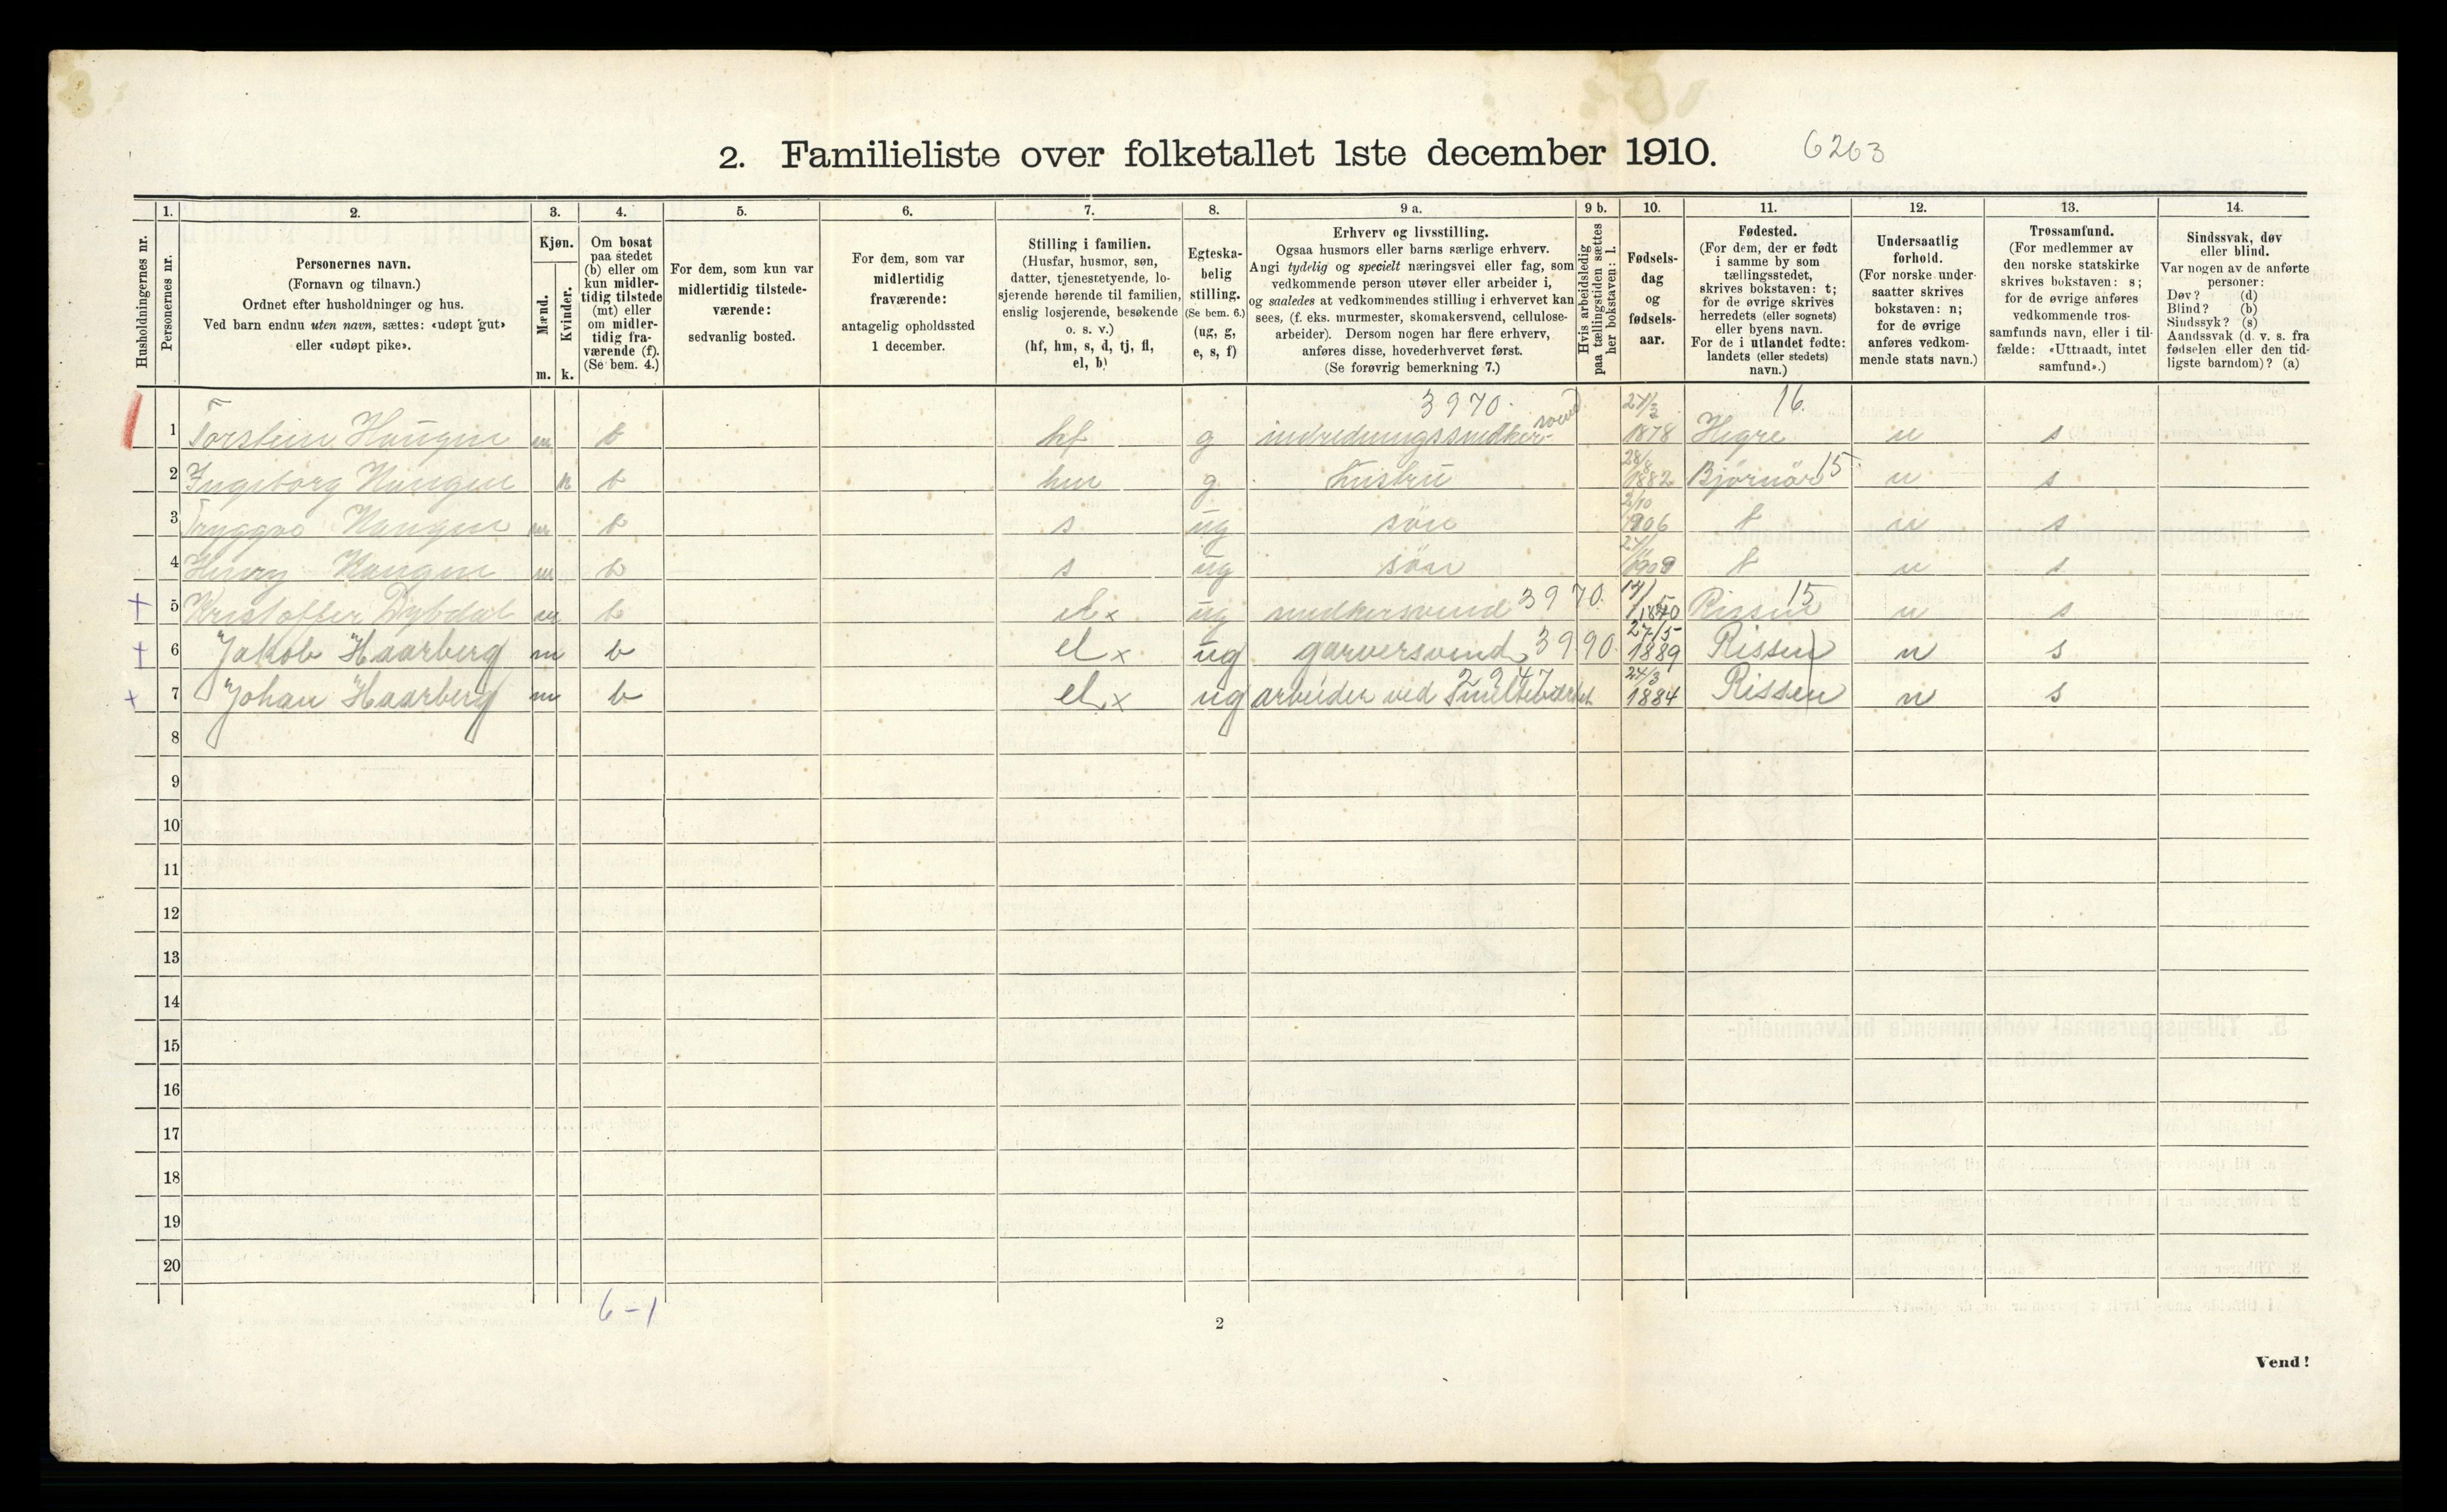 2. Familieliste over folketallet 1ste december 1910. 6263
Husholdningernes nr.
1. Personernes nr.
2. Personernes navn.
(Fornavn og tilnavn.)
Ordnet efter husholdninger og hus.
Ved barn endnu uten navn, sættes: «udøpt gut»
eller «udøpt pike».
3. Kjøn.
Mænd. Kvinder.
m. k.
4. Om bosat
paa stedet
(b) eller om
kun midler-
tidig tilstede
(mt) eller
om midler-
tidig fra-
værende (f).
(Se bem. 4.)
5. For dem, som kun var
midlertidig tilstede-
værende:
sedvanlig bosted.
6. For dem, som var
midlertidig
fraværende:
antagelig opholdssted
1 december.
7. Stilling i familien.
(Husfar, husmor, søn,
datter, tjenestetyende, lo-
sjerende hørende til familien,
enslig losjerende, besøkende
o. s. v.)
(hf, hm, s, d, tj, fl,
el, b)
8. Egteska-
belig
stilling.
(Se bem. 6.)
(ug, g,
e, s, f)
9 a. Erhverv og livsstilling.
Ogsaa husmors eller barns særlige erhverv.
Angi tydelig og specielt næringsvei eller fag, som
vedkommende person utøver eller arbeider i,
og saaledes at vedkommendes stilling i erhvervet kan
sees, (f. eks. murmester, skomakersvend, cellulose-
arbeider). Dersom nogen har flere erhverv,
anføres disse, hovederhvervet først.
(Se forøvrig bemerkning 7.)
9 b. Hvis arbeidsledig
paa tællingstiden sættes
her bokstaven: l.
10. Fødsels-
dag
og
fødsels-
aar.
11. Fødested.
(For dem, der er født
i samme by som
tællingsstedet,
skrives bokstaven: t;
for de øvrige skrives
herredets (eller sognets)
eller byens navn.
For de i utlandet fødte:
landets (eller stedets)
navn.)
12. Undersaatlig
forhold.
(For norske under-
saatter skrives
bokstaven: n;
for de øvrige
anføres vedkom-
mende stats navn.)
13. Trossamfund.
(For medlemmer av
den norske statskirke
skrives bokstaven: s;
for de øvrige anføres
vedkommende tros-
samfunds navn, eller i til-
fælde: «Uttraadt, intet
samfund».)
14. Sindssvak, døv
eller blind.
Var nogen av de anførte
personer:
Døv? (d)
Blind? (b)
Sindssyk? (s)
Aandssvak (d. v. s. fra
fødselen eller den tid-
ligste barndom)? (a)
3970. 16.
1 Torstein Haugen m b hf g indredningssnedker-svend 1878 Hegre n s
2 Ingeborg Haugen k b hm g Hustru 28/8 1882 Bjørnör 15 n s
3 Tryggve Haugen m b s ug sön 2/10 1906 t n s
4 Henry Haugen m b s ug sön 1909 t n s
5 Kristoffer Dybdal m b el x ug snedkersvend 3970. Rissen 15 n s
6 Jakob Haarberg m b el x ug garversvend 3990. 27/5 1889 Rissen n s
2947
7 Johan Haarberg m b el x ug arbeider ved Smelteverket 24/3 1884 Rissen n s
8
9
10
11
12
13
14
15
16
17
18
19
20
6-1
2
Vend!